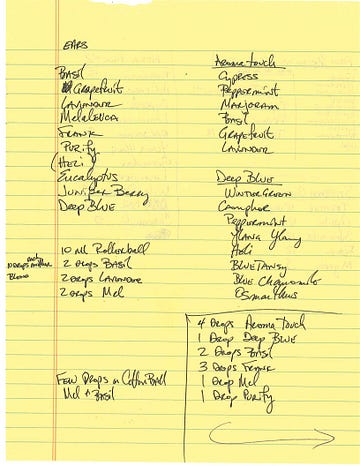 EARS
Basil
Grapefruit
Lavender
Melaleuca
Frank
Purify
(Heli)
Eucalyptus
Juniper Berry
Deep Blue
10 ml Rollerball
2 drops Basil
2 drops Lavender
2 drops Mel
only
10 Drops another
Blend
Few Drops on Cotton Ball
Mel + Basil
Aroma Touch
Cypress
Peppermint
Marjoram
Basil
Grapefruit
Lavender
Deep Blue
Wintergreen
Camphor
Peppermint
Ylang Ylang
Heli
Blue Tansy
Blue Chamomile
Osmanthus
4 Drops Aroma Touch
1 Drop Deep Blue
2 Drops Basil
3 Drops Frank
1 Drop Mel
1 Drop Purify